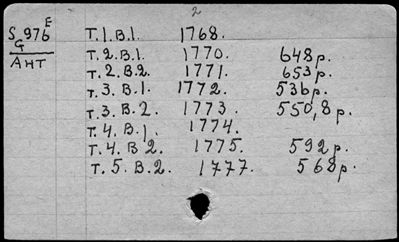 2
S 976 E
G
АНТ
Т. 1. В. 1. 1768.
Т. 2. В. 1. 1770. 648р.
Т. 2. В. 2. 1771. 653р.
Т. 3. В. 1. 1772. 536р.
Т. 3. В. 2. 1773. 550,8р.
Т. 4. В. 1. 1774.
Т. 4. В. 2. 1775. 592р.
Т. 5. В. 2. 1777. 568р.